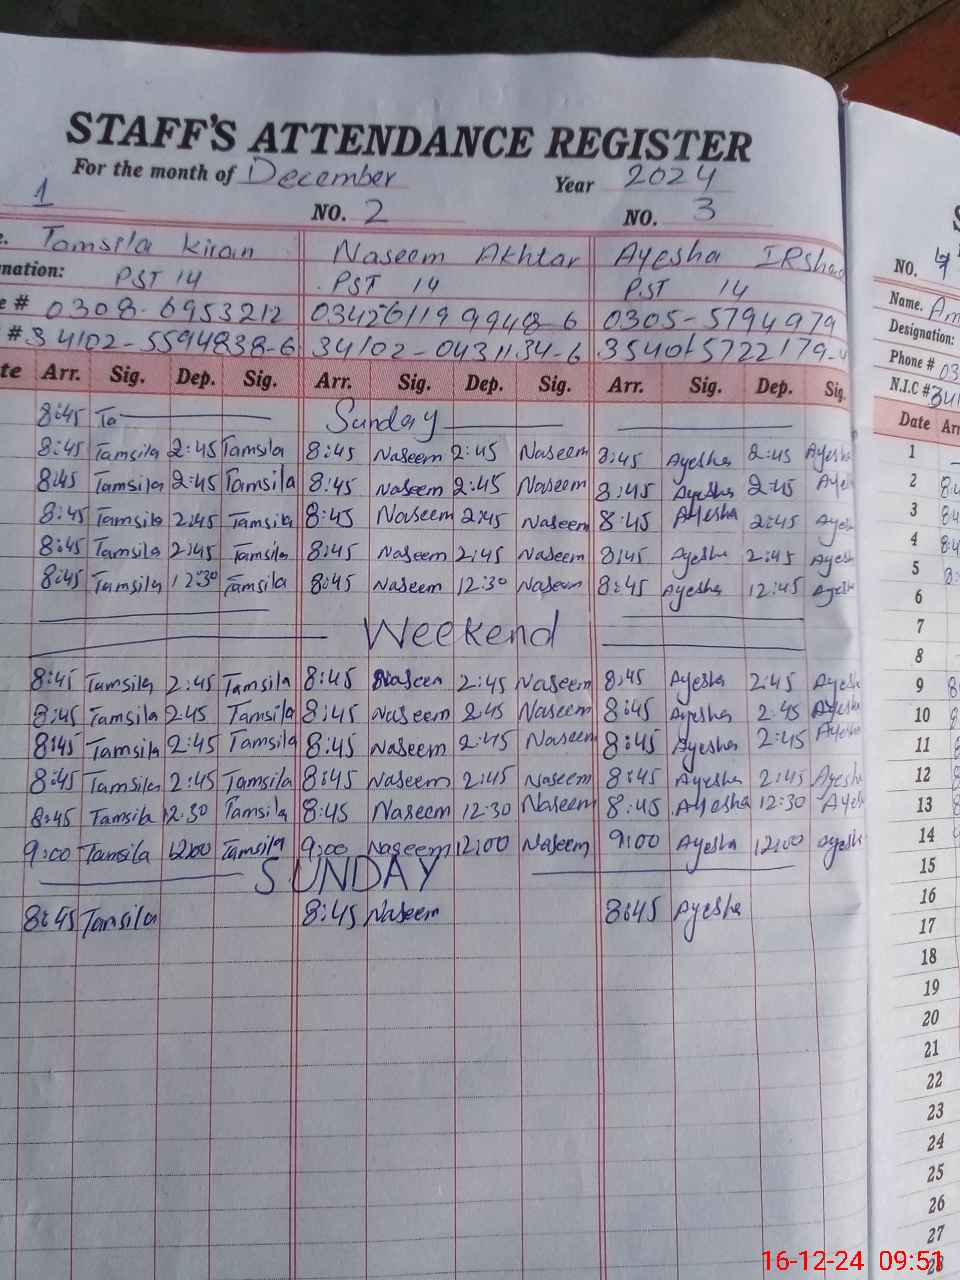 STAFF'S ATTENDANCE REGISTER
For the month of December Year 2024
1 NO. 2 NO. 3
Tamsila Kiran Naseem Akhtar Ayesha IRshad
nation: PST 14 PST 14 PST 14
e # 0308-6953212 0305-5794979
# 34102-5594838-6 34102-0431134-6
te Arr. Sig. Dep. Sig. Arr. Sig. Dep. Sig. Arr. Sig. Dep. Sig.
8:45 Ta Sunday
8:45 Tamsila 2:45 Tamsila 8:45 Naseem 2:45 Naseem 8:45 Ayesha 2:45 Ayesha
8:45 Tamsila 2:45 Tamsila 8:45 Naseem 2:45 Naseem 8:45 Ayesha 2:45 Aye
8:45 Tamsila 2:45 Tamsila 8:45 Naseem 2:45 Naseem 8:45 Ayesha 2:45 Ayesh
8:45 Tamsila 2:45 Tamsila 8:45 Naseem 2:45 Naseem 8:45 Ayesha 2:45 Ayesh
8:45 Tamsila 12:30 Tamsila 8:45 Naseem 12:30 Naseem 8:45 Ayesha 12:45 Ayesh
Weekend
8:45 Tamsila 2:45 Tamsila 8:45 Naseem 2:45 Naseem 8:45 Ayesha 2:45 Ayesh
8:45 Tamsila 2:45 Tamsila 8:45 Naseem 2:45 Naseem 8:45 Ayesha 2:45 Ayesha
8:45 Tamsila 2:45 Tamsila 8:45 Naseem 2:45 Naseem 8:45 Ayesha 2:45 Ayesha
8:45 Tamsila 2:45 Tamsila 8:45 Naseem 2:45 Naseem 8:45 Ayesha 2:45 Ayesha
8:45 Tamsila 12:30 Tamsila 8:45 Naseem 12:30 Naseem 8:45 Ayesha 12:30 Ayes
9:00 Tamsila 12:00 Tamsila 9:00 Naseem 12:00 Naseem 9:00 Ayesha 12:00 ayesh
SUNDAY
8:45 Tamsila 8:45 Naseem 8:45 Ayesha
S
NO. 4
Name. Am
Designation:
Phone # 03
N.I.C # 341
Date Arr
1
2
3
4
5
6
7
8
9
10
11
12
13
14
15
16
17
18
19
20
21
22
23
24
25
26
27
28
16-12-24 09:51